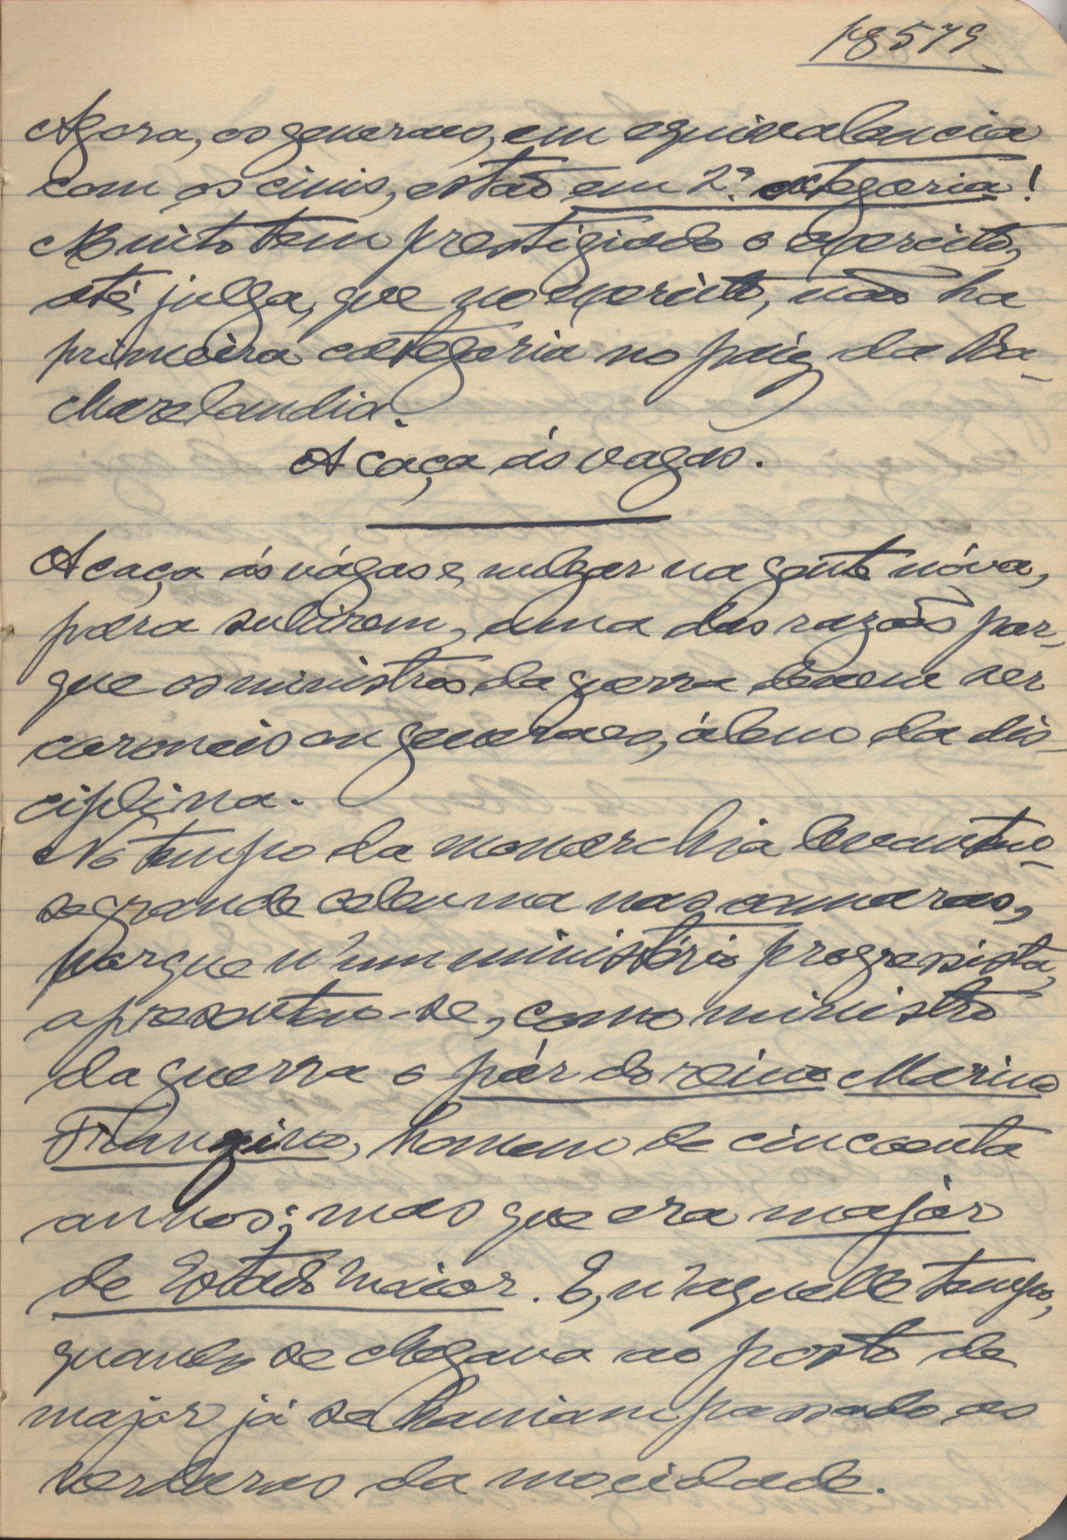 18579
Agora, os generaes, em equivalencia
com os civis, estão em 2ª categoria!
Muito tem prestigiado o exercito,
até julga, que no exercito, não ha
primeira categoria no paiz da Ba-
charelandia.
A caça ás vagas.
Acaça ás vágas e, vulgar na gente nóva,
para subirem, uma das razões por-
que os ministros da guerra devem ser
coroneis ou generaes, álem da dis-
ciplina.
No tempo da monarchia levantou-
se grande celeuma nas camaras,
porque n'um ministério progressista,
apresentou-se, como ministro
da guerra o pár do reino Marino
Franzino, homem de cincoenta
annos; mas que era major
de Estado Maior. E, n'aquelle tempo,
quando se chegava ao posto de
major já se haviam passado as
verduras da mocidade.